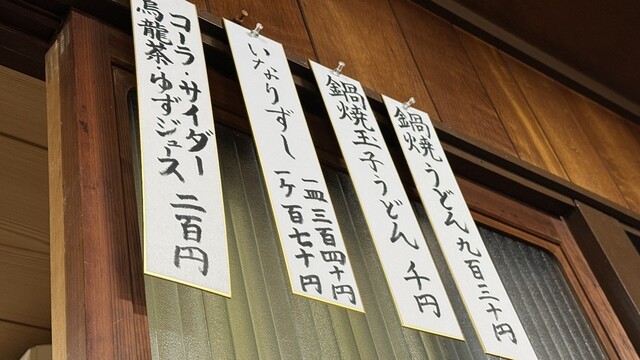 鍋焼うどん 九百三十円
鍋焼玉子うどん 千円
いなりずし
一皿 三百四十円
一ケ 百七十円
コーラ・サイダー
烏龍茶・ゆずジュース 二百円